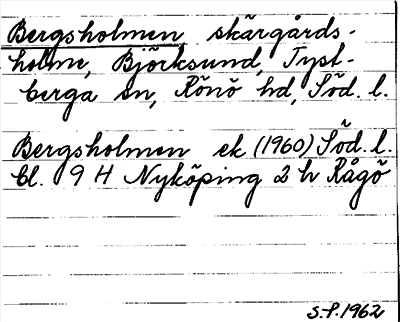 Bergsholmen, skärgårds-
holme, Björksund, Tyst-
berga sn, Rönö hd, Söd. l.
Bergsholmen ek (1960) Söd. l.
bl. 9 H Nyköping 2 h Rågö
S.P. 1962